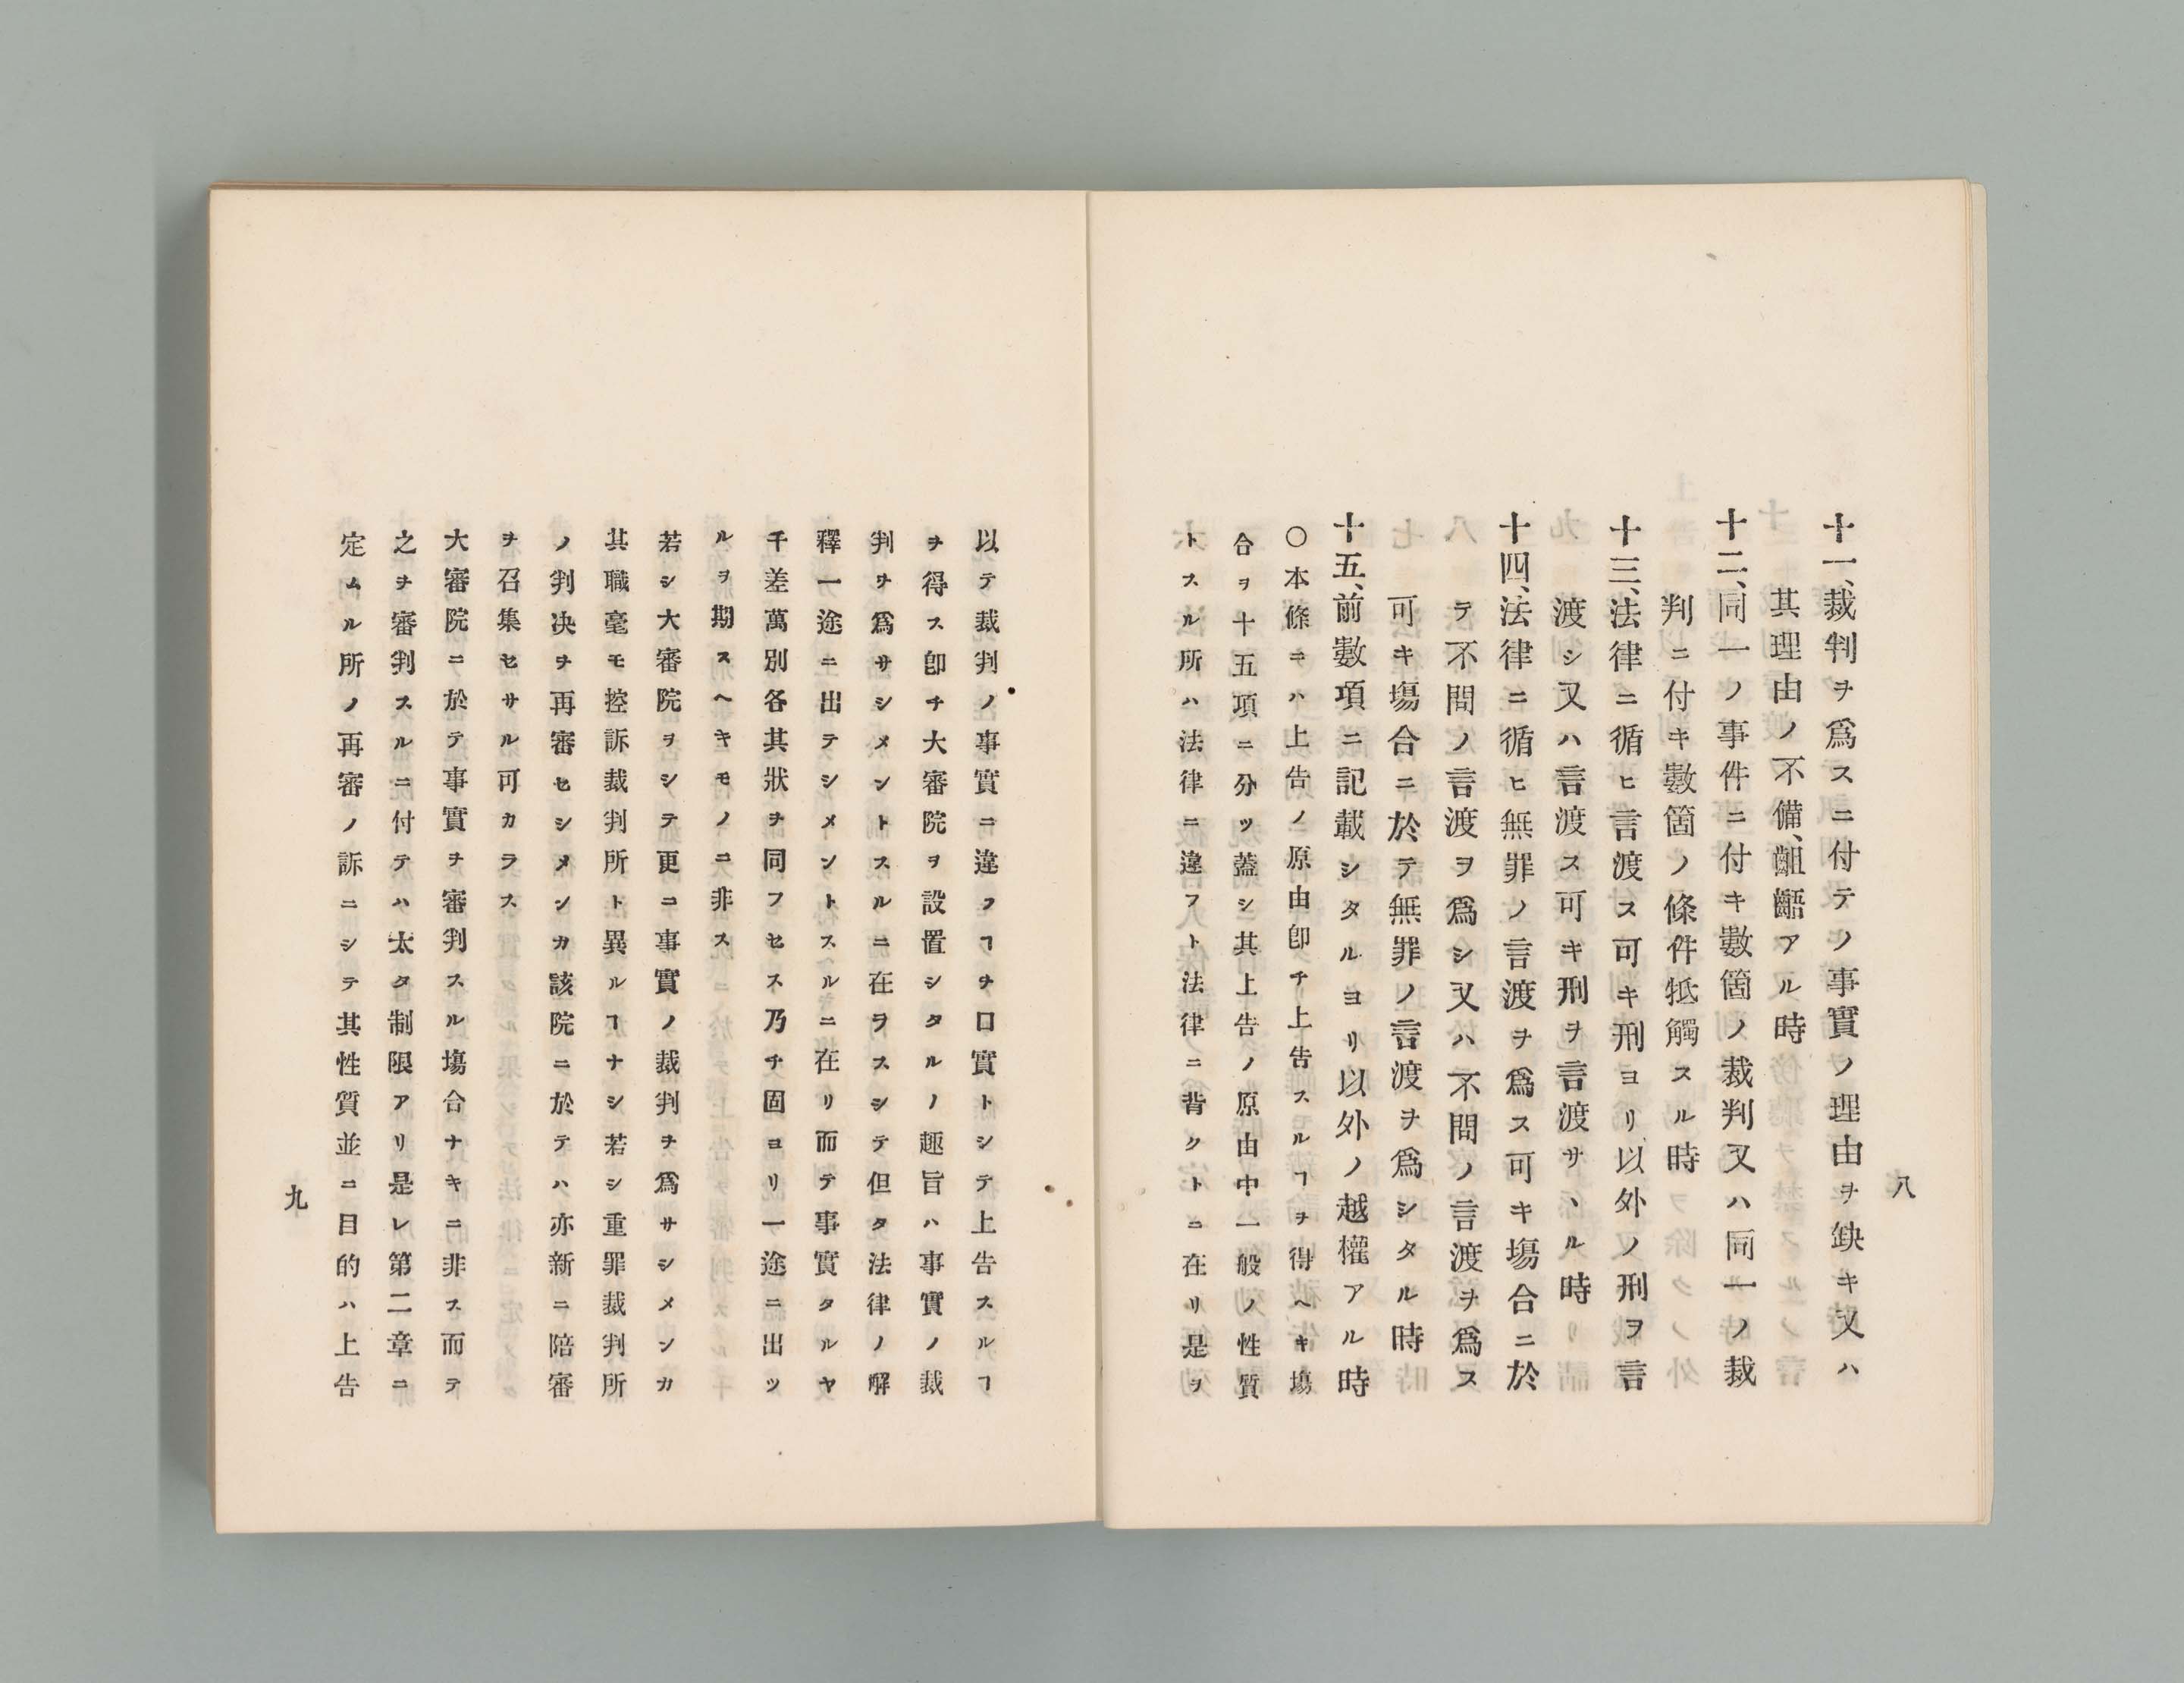 八
十一、裁判ヲ爲スニ付テノ事實ノ理由ヲ缺キ又ハ
其理由ノ不備、齟齬アル時
十二、同一ノ事件ニ付キ數箇ノ裁判又ハ同一ノ裁
判ニ付キ數箇ノ條件牴觸スル時
十三、法律ニ循ヒ言渡ス可キ刑ヨリ以外ノ刑ヲ言
渡シ又ハ言渡ス可キ刑ヲ言渡サヽル時
十四、法律ニ循ヒ無罪ノ言渡ヲ爲ス可キ塲合ニ於
テ不問ノ言渡ヲ爲シ又ハ不問ノ言渡ヲ爲ス
可キ塲合ニ於テ無罪ノ言渡ヲ爲シタル時
十五、前數項ニ記載シタルヨリ以外ノ越權アル時
〇本條ニハ上告ノ原由卽チ上告スルヿヲ得ヘキ塲
合ヲ十五項ニ分ツ蓋シ其上告ノ原由中一般ノ性質
トスル所ハ法律ニ違フト法律ニ背クトニ在リ是ヲ
以テ裁判ノ事實ニ違フヿヲ口實トシテ上告スルヿ
ヲ得ス卽チ大審院ヲ設置シタルノ趣旨ハ事實ノ裁
判ヲ爲サシメントスルニ在ラスシテ但タ法律ノ解
釋一途ニ出テシメントスルニ在リ而テ事實タルヤ
千差萬別各其狀ヲ同フセス乃チ固ヨリ一途ニ出ツ
ルヲ期スヘキモノニ非ス
若シ大審院ヲシテ更ニ事實ノ裁判ヲ爲サシメンカ
其職毫モ控訴裁判所ト異ルヿナシ若シ重罪裁判所
ノ判决ヲ再審セシメンカ該院ニ於テハ亦新ニ陪審
ヲ召集セサル可カラス
大審院ニ於テ事實ヲ審判スル塲合ナキニ非ス而テ
之ヲ審判スルニ付テハ太タ制限アリ是レ第二章ニ
定ムル所ノ再審ノ訴ニシテ其性質並ニ目的ハ上告
九